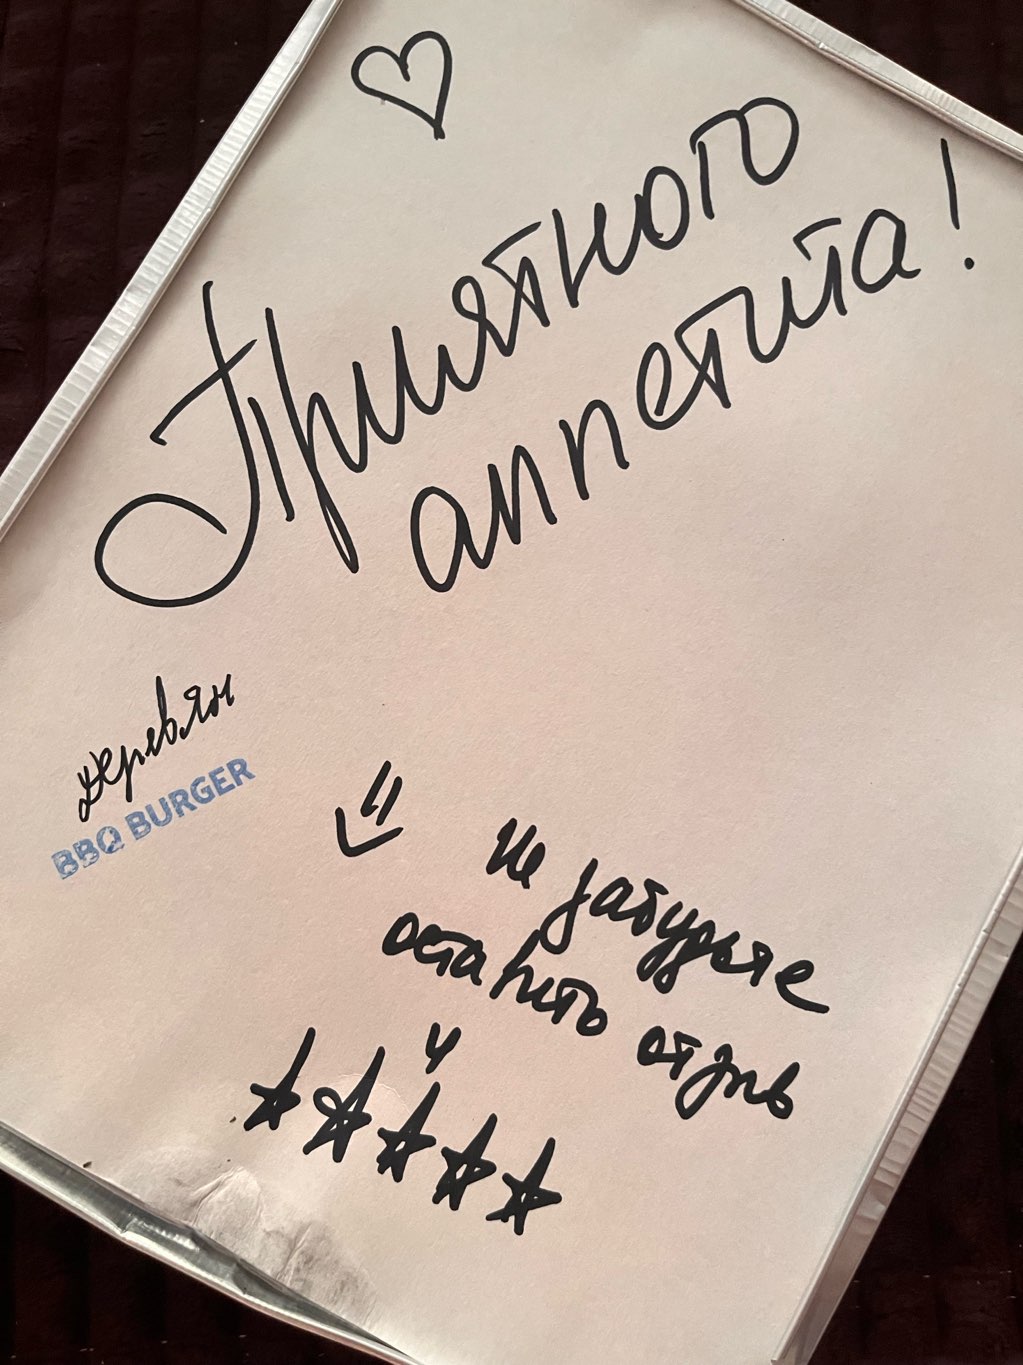 Приятного
аппетита!
Деревян
BBQ BURGER
Не забудьте
оставить отзыв
и